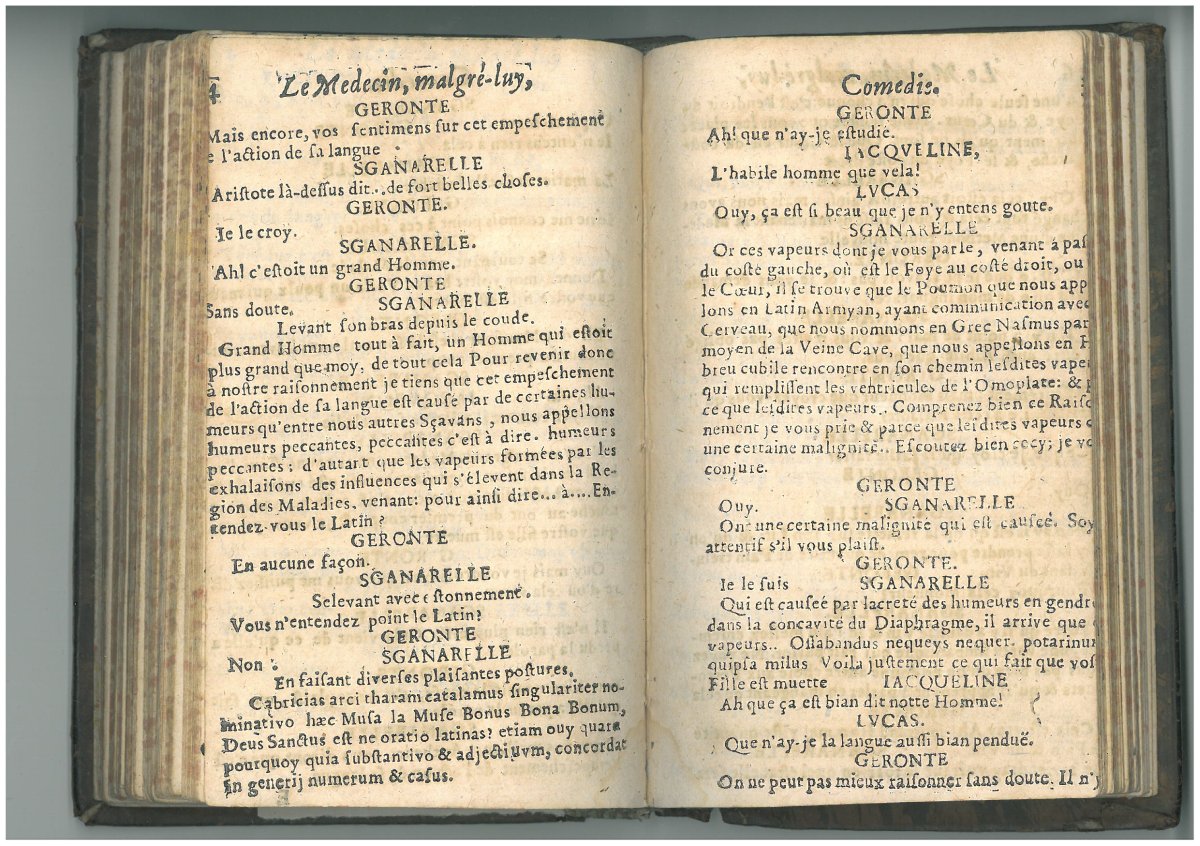 4 Le Medecin, malgré-luy,
GERONTE
Mais encore, vos sentimens sur cet empeschement
e l'action de sa langue
SGANARELLE
Aristote là-dessus dit...de fort belles choses.
GERONTE.
Ie le croy.
SGANARELLE.
Ah! c'estoit un grand Homme.
GERONTE
Sans doute. SGANARELLE
Levant son bras depuis le coude.
Grand Homme tout à fait, un Homme qui estoit
plus grand que moy, de tout cela Pour revenir donc
à nostre raisonnement je tiens que cet empeschement
de l'action de sa langue est causé par de certaines hu-
meurs qu'entre nous autres Sçavans, nous appellons
humeurs peccantes, peccantes c'est à dire. humeurs
peccantes; d'autant que les vapeurs formées par les
exhalaisons des influences qui s'élevent dans la Re-
gion des Maladies, venant: pour ainsi dire... à....En-
tendez-vous le Latin?
GERONTE
En aucune façon.
SGANARELLE
Selevant avec estonnement.
Vous n'entendez point le Latin?
GERONTE
Non. SGANARELLE
En faisant diverses plaisantes postures.
Cabricias arci tharam catalamus singulariter no-
minativo hæc Musa la Muse Bonus Bona Bonum,
Deus Sanctus est ne oratio latinas? etiam ouy quare
pourquoy quia substantivo & adjectivum, concordat
in generij numerum & casus.
Comedie.
GERONTE
Ah! que n'ay-je estudié.
IACQVELINE,
L'habile homme que vela!
LVCAS
Ouy, ça est si beau que je n'y entens goute.
SGANARELLE
Or ces vapeurs dont je vous parle, venant à pas
du costé gauche, où est le Foye au costé droit, ou
le Cœur, il se trouve que le Poumon que nous app
lons en Latin Armyan, ayant communication avec
Cerveau, que nous nommons en Grec Nasmus par
moyen de la Veine Cave, que nous appellons en H
breu cubile rencontre en son chemin lesdites vape
qui remplissent les ventricules de l'Omoplate: & p
ce que lesdites vapeurs.. Comprenez bien ce Raiso
nement je vous prie & parce que lesdites vapeurs o
une certaine malignité.. Escoutez bien cecy; je vo
conjure.
GERONTE
Ouy. SGANARELLE
Ont une certaine malignité qui est causeé. Soy
attentif s'il vous plaist.
GERONTE.
Ie le suis SGANARELLE
Qui est causeé par lacreté des humeurs en gendre
dans la concavité du Diaphragme, il arrive que
vapeurs.. Ossabandus nequeys nequer. potarinum
quipsa milus Voila justement ce qui fait que vos
Fille est muette IACQUELINE
Ah que ça est bian dit notte Homme!
LVCAS.
Que n'ay-je la langue aussi bian penduë.
GERONTE
On ne peut pas mieux raisonner sans doute. Il n'y